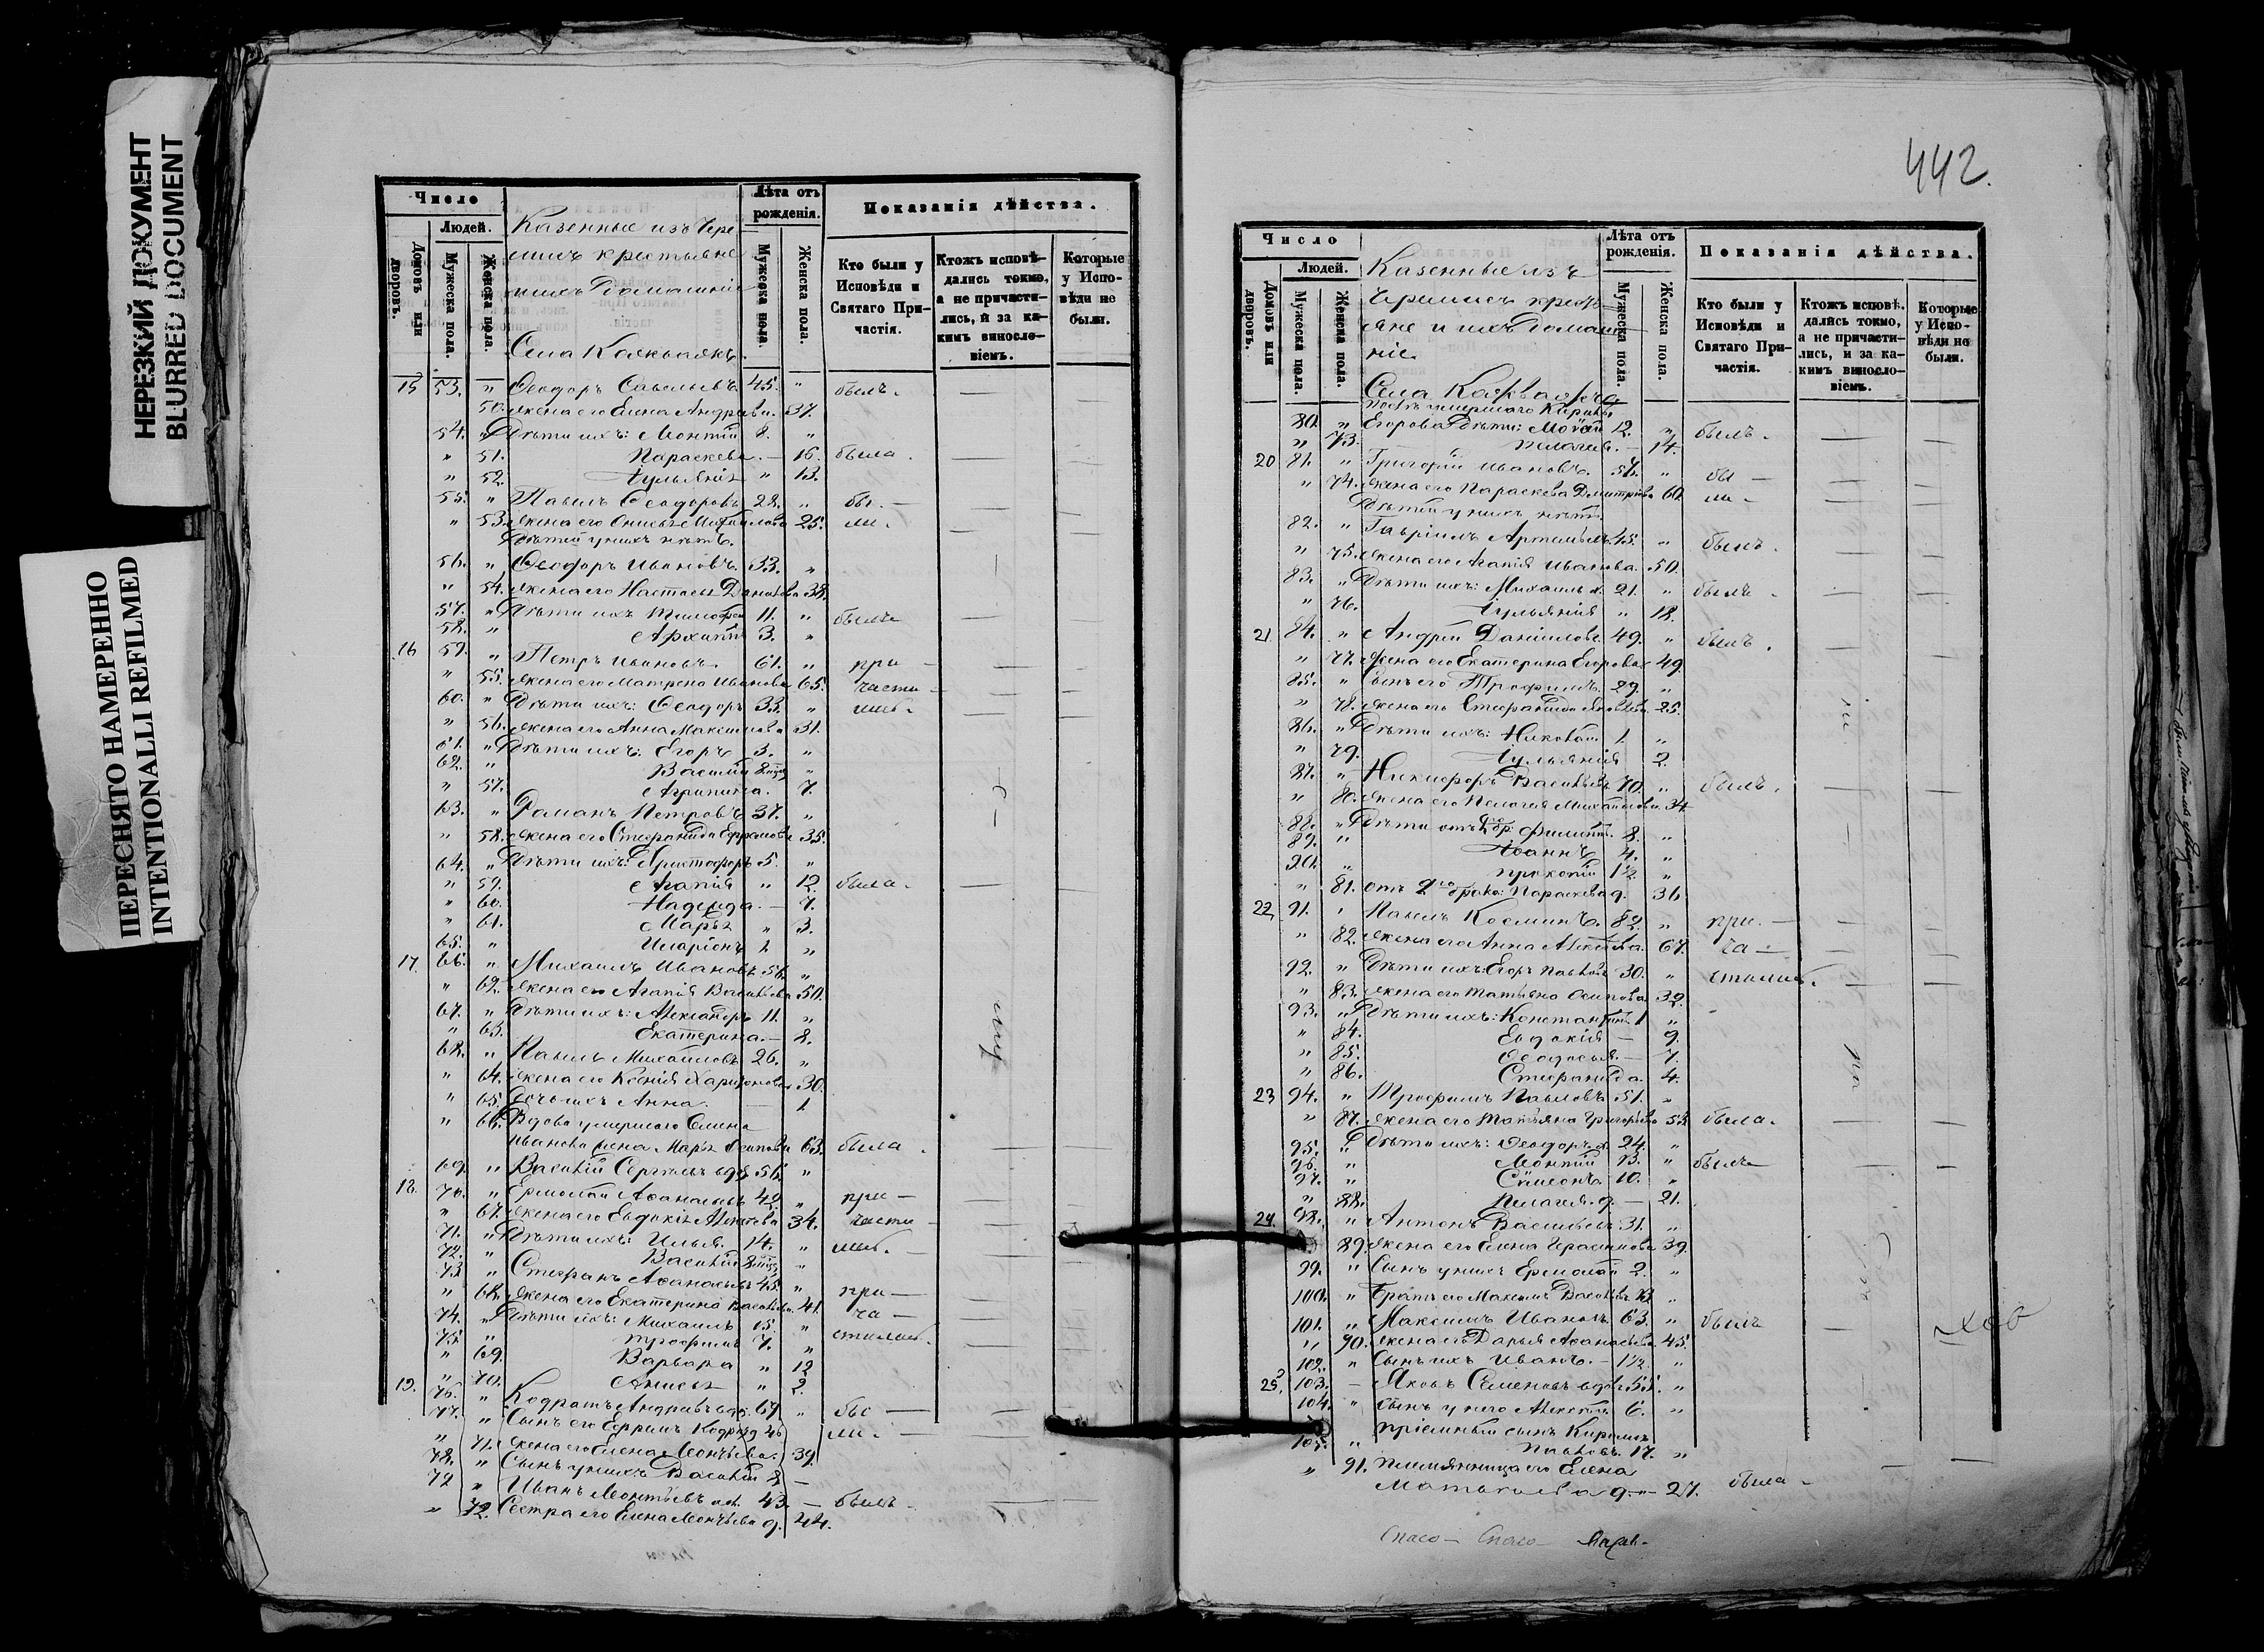 НЕРЕЗКИЙ ДОКУМЕНТ
BLURRED DOCUMENT
ПЕРЕСНЯТО НАМЕРЕННО
INTENTIONALLI REFILMED
Число
Людей.
Домовъ или дворовъ.
Мужеска пола.
Женска пола.
Казенные изъ Чере
мисъ крестьяне
и ихъ Домашніе
Села
Лѣта отъ рожденія.
Мужеска пола.
Женска пола.
Показанія дѣйства.
Кто были у Исповѣди и Святаго Причастія.
Ктожъ исповѣдались токмо, а не причастились, и за какимъ винословіемъ.
Которые у Исповѣди не были.
15 53. " Ѳеодоръ Савельевъ 45. " былъ.
50. жена его Елена Андрѣева. 37.
54. " Дѣти ихъ: Монтій 8. "
" 51. Параскева. — 16. была.
" 52. Іульянія " 13.
55. " Павелъ Ѳеодоровъ 28. " бы-
" 53. жена его Анисья 25. ли.
Дѣтей у нихъ нѣтъ.
56. " Ѳеодоръ Ивановъ. 33. "
" 54. жена его Настасья 38.
57. " Дѣти ихъ Тимофей 11. " были
58. " Архипъ 3. "
16 59. " Петръ Ивановъ. 61. " при-
" 55. жена его Матрена Иванова 65. части-
60. " Дѣти ихъ: Ѳеодоръ 33. " лись.
" 56. жена его Анна Максимова 31.
61. " Дѣти ихъ: Егоръ 3. "
62. " Василій "
" 57. Агрипина. 7.
63. " Романъ Петровъ 37. "
" 58. жена его Стефанида Ефремова 35.
64. " Дѣти ихъ: Христофоръ 5. "
" 59. Агапія " 12. была.
" 60. Надежда. — 7.
" 61. Марья " 3.
65. " Иларіонъ 1 "
17. 66. " Михаилъ Ивановъ 56. "
" 62. жена его Агапія Васильева 50.
67. " Дѣти ихъ: Александръ 11. "
" 63. Екатерина. — 8.
68. " Павелъ Михайловъ 26. "
" 64. жена его Ксенія Харитонова 30.
" 65. дочь ихъ Анна. 1
" 66. Вдова умершаго
Иванова жена Марья Осипова 63. была.
69. " Василій Сергѣевъ вдъ 56. "
18. 70. " Ермолай Аѳанасьевъ 42. " при-
" 67. жена его Евдокія Алексѣева 34. части-
71. " Дѣти ихъ: Илья. 14. " лись.
72. " Василій "
73 " Стефанъ Аѳанасьевъ 45. " при-
" 68. жена его Екатерина Васильева. 41. ча-
74. " Дѣти ихъ: Михаилъ 15. " стились.
75. " Трофимъ 7. "
" 69. Варвара " 12
" 70. Анисья " 2.
19. 76. " Кодратъ Андрѣевъ вдъ. 69. " бы-
77. " Сынъ его Ефремъ 46 ли.
" 71. жена его Елена Монтѣева. 39.
78. " Сынъ у нихъ Василій 8 —
79 " Иванъ Монтѣевъ 43. — былъ.
" 72. Сестра его Елена Монтѣева д. 44.
442.
Число
Людей.
Домовъ или дворовъ.
Мужеска пола.
Женска пола.
Казенные изъ
Черемисъ кресть
яне и ихъ Домаш
ніе.
Села
Лѣта отъ рожденія.
Мужеска пола.
Женска пола.
Показанія дѣйства.
Кто были у Исповѣди и Святаго Причастія.
Ктожъ исповѣдались токмо, а не причастились, и за какимъ винословіемъ.
Которые у Исповѣди не были.
послѣ умершаго
80. " Егорова Дѣти: 12. " былъ.
" 73. Пелагея. — 14.
20 81. " Григорій Ивановъ. 56. " бы-
" 74. жена его Параскева Дмитріева 60. ли.
Дѣтей у нихъ нѣтъ.
82. " Гавріилъ Артемьевъ 45. " былъ.
" 75. жена его Агапія Иванова. 50.
83. " Дѣти ихъ: Михаилъ х. 21. " былъ.
" 76. Іульянія " 18.
21. 84. " Андрей Даниловъ. 49. " былъ.
" 77. жена его Екатерина Егорова 49.
85. " Сынъ его Трофимъ. 29. "
" 78. жена его Стефанида 25.
86. " Дѣти ихъ: Николай 1. "
" 79. Іульянія 2.
87. " Никифоръ Васильевъ 70. " былъ.
" 80. жена его Пелагея Михайлова 34
88. " Дѣти отъ Филиппъ. 8. "
89. " Іоаннъ 4. "
90. " Прокопій 1½ "
" 81. отъ 2го брака: Параскева д. 36
22. 91. " Павелъ Косминъ. 82. " при-
" 82. жена его Анна Алексѣева. 67. ча-
92. " Дѣти ихъ: Егоръ 30. " стились.
" 83. жена его Татьяна Осипова 32.
93. " Дѣти ихъ: Константинъ 1 "
" 84. Евдокія — 9.
" 85. Ѳеодосья — 7.
" 86. Стефанида. 4.
23 94. " Трофимъ Павловъ 51. "
" 87. жена его Татьяна Григорьева 53. была.
95. " Дѣти ихъ: Ѳеодоръ х. 24. "
96. " Монтій 13. " были
97. " Симеонъ 10. "
" 88. Пелагея. д. — 21.
24. 98. " Антонъ Васильевъ 31. "
89. жена его Елена Герасимова 39.
99. " Сынъ у нихъ Ермолай 2. "
100. " Братъ его Максимъ Васильевъ "
101. " Максимъ Ивановъ 63. " былъ
" 90. жена его Дарья Аѳанасьева 45.
102. " Сынъ ихъ Иванъ. — 1½ "
25. 103. — Яковъ Семеновъ вдъ 55. "
104. " Сынъ у него Алексѣй 6. "
пріемный сынъ Кириллъ
105. " Павловъ. 17. "
" 91. Племянница его Елена
Матвѣева д. — 27. была.
Спасо- Спасо-